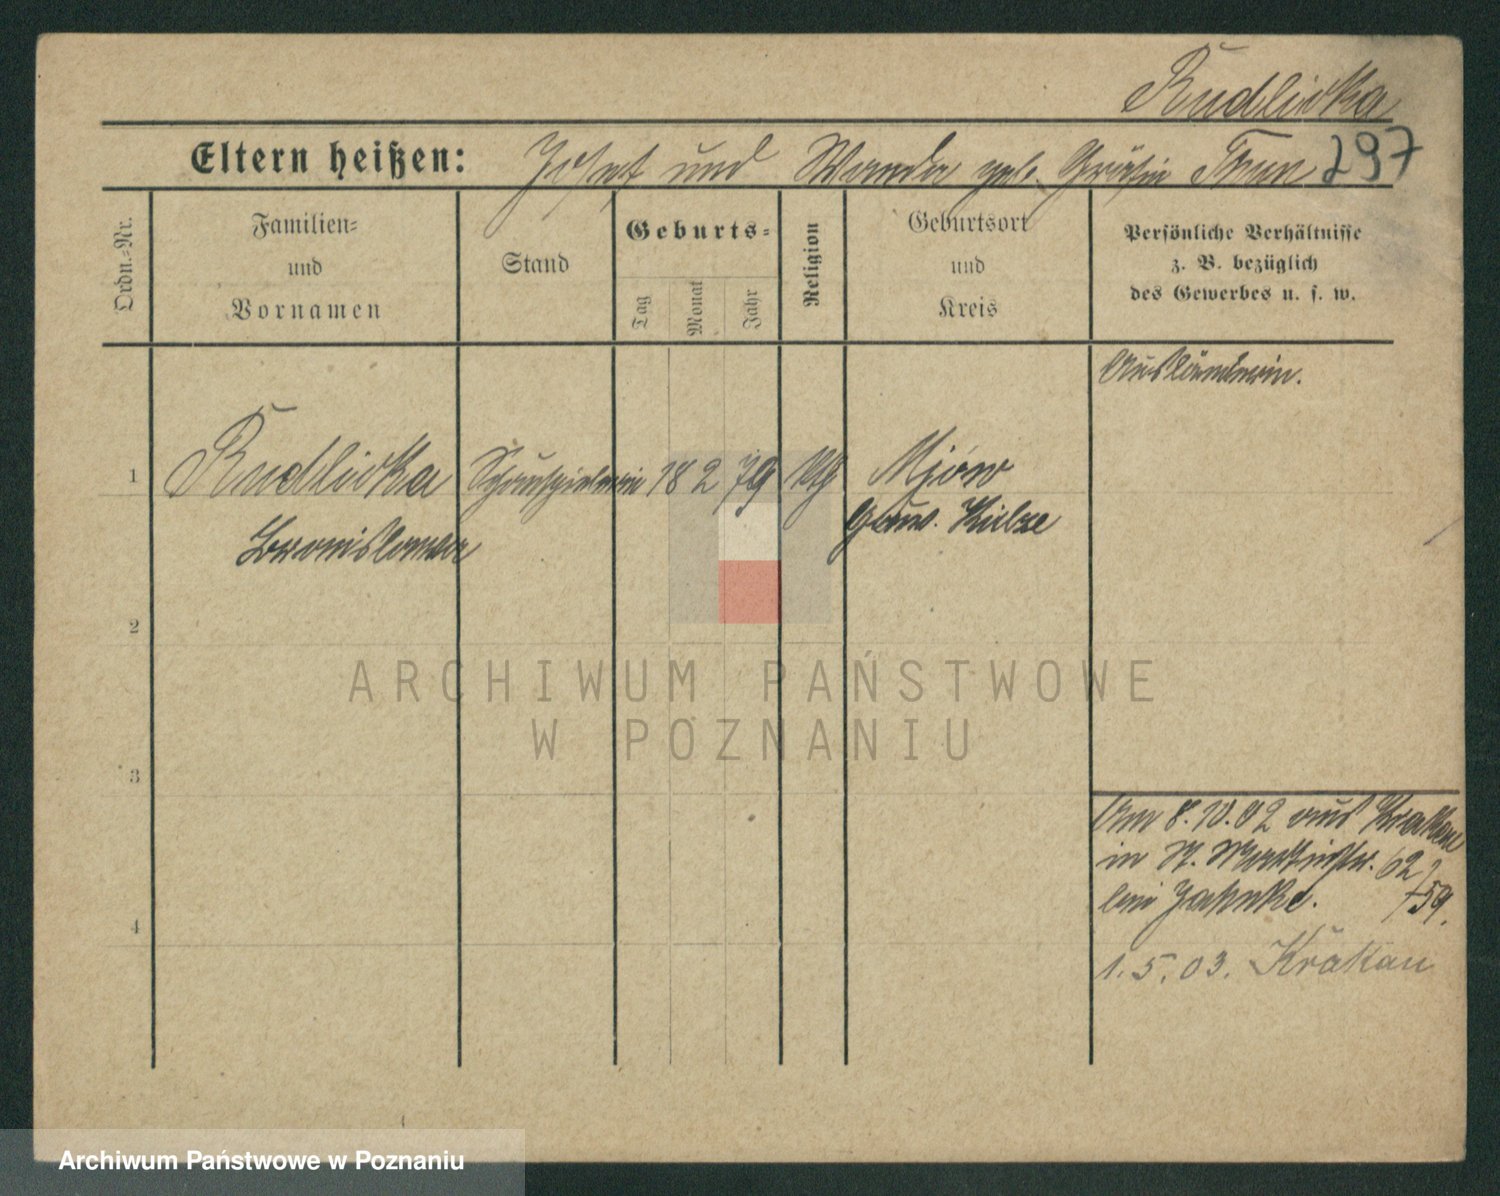 Rudlicka
Eltern heißen: Josef und Wanda geb. Gräfin 297
Ordn.-Nr.
Familien-
und
Vornamen
Stand
Geburts-
Tag
Monat
Jahr
Religion
Geburtsort
und
Kreis
Persönliche Verhältnisse
z. B. bezüglich
des Gewerbes u. s. w.
Ausländerin.
1 Rudlicka Schauspielerin 18 2 79 Mjów
Bronislawa Gouv. Kielce
2
3
4
Am 8.10.02 aus Krakau
in St. Martinstr. 62,
bei Jahnke. 759.
1.5.03. Krakau
ARCHIWUM PAŃSTWOWE
W POZNANIU
Archiwum Państwowe w Poznaniu